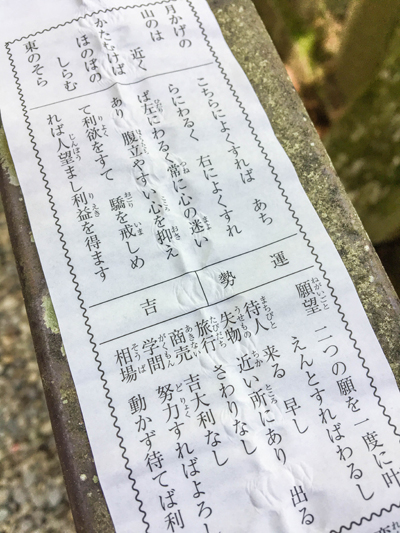 月かげの
山のは
近く
かたむけば
ほのぼの
しらむ
東のそら
こちらによくすれば　あち
らにわるく　右によくすれ
ば左にわるく常に心の迷い
あり　腹立やすい心を抑え
て利欲をすて　驕を戒しめ
れば人望まし利益を得ます
運勢　吉
願望　二つの願を一度に叶
えんとすればわるし
待人　来る　早し
失物　近い所にあり　出る
旅行　さわりなし
商売　吉大利なし
学問　努力すればよろし
相場　動かず待てば利